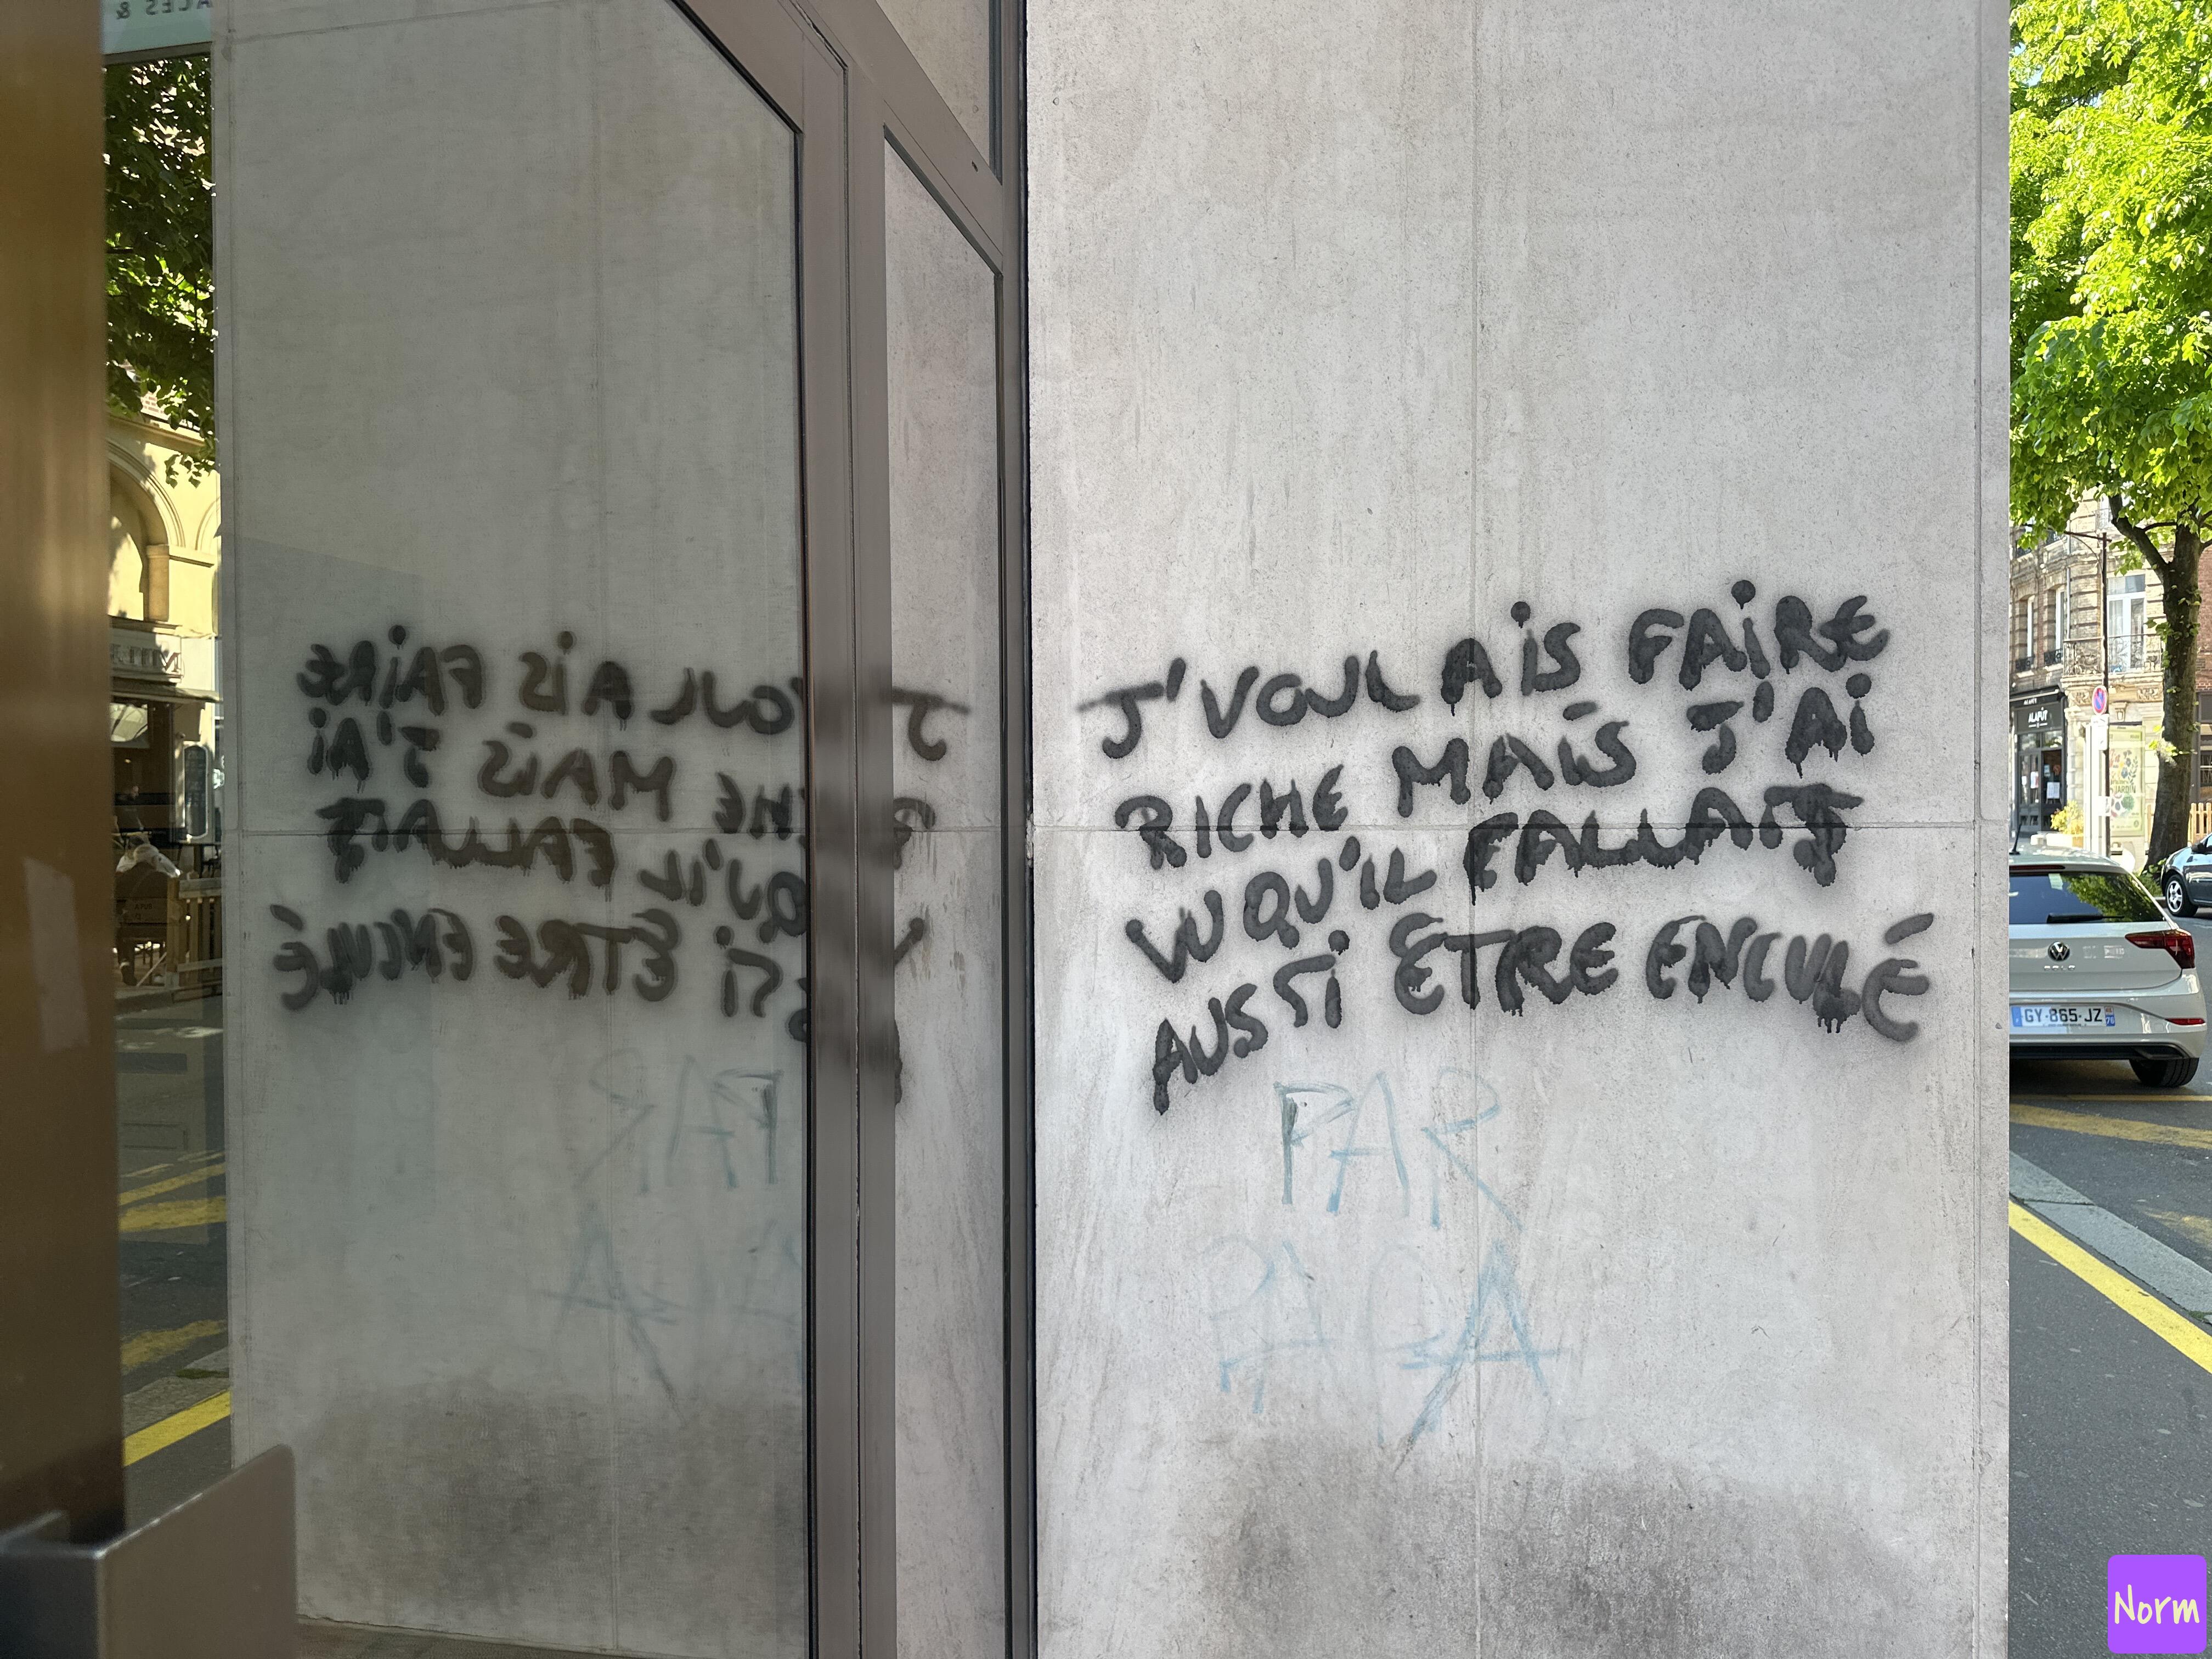 J'VOULAIS FAIRE
RICHE MAIS J'AI
VU QU'IL FALLAIT
AUSSI ÊTRE ENCULÉ
PAR
PAPA
ALAFUT
GY-865-JZ
Norm